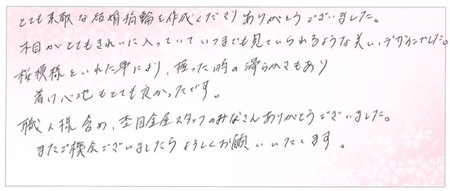 とても素敵な結婚指輪を作成くださりありがとうございました。
木目がとてもきれいに入っていていつまでも見ていられるような美しいデザインでした。
桜模様をいれた事により、触った時の滑らかさもあり
着け心地もとても良かったです。
職人様含め、杢目金屋スタッフのみなさんありがとうございました。
またご機会ございましたらよろしくお願いいたします。